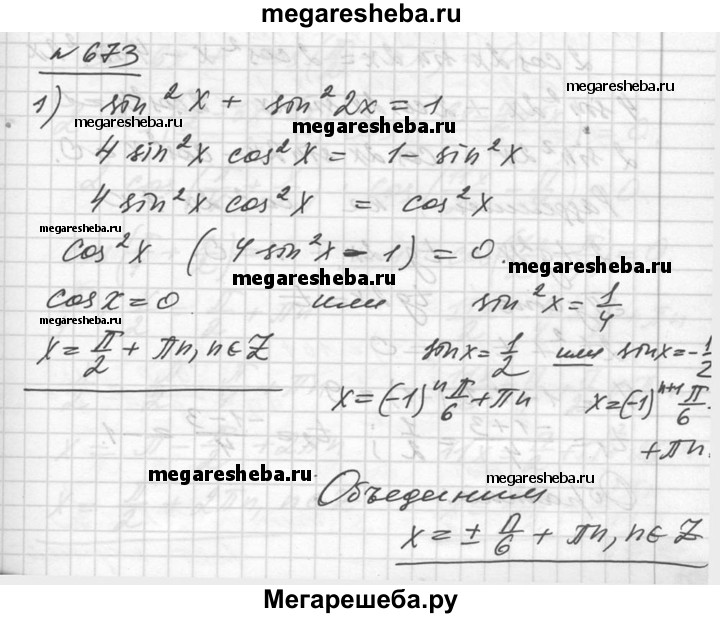 megaresheba.ru
№ 673
1) sin²x + sin²2x = 1
megaresheba.ru
megaresheba.ru
megaresheba.ru
4 sin²x cos²x = 1 - sin²x
4 sin²x cos²x = cos²x
megaresheba.ru
cos²x (4 sin²x - 1) = 0.
megaresheba.ru
cos x = 0 или sin²x = 1/4
megaresheba.ru
x = π/2 + πn, n ∈ Z
sin x = 1/2 или sin x = -1/2
x = (-1)ⁿ π/6 + πn x = (-1)ⁿ⁺¹ π/6 + πn.
megaresheba.ru
megaresheba.ru
Объединим
x = ± π/6 + πn, n ∈ Z
Мегарешеба.ру